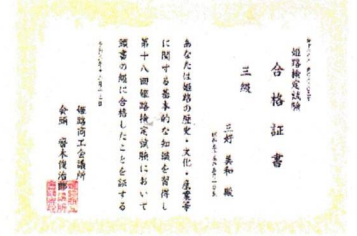 姫路検定試験
合格証書
三級
三好 美和 殿
あなたは姫路の歴史・文化・産業等
に関する基本的な知識を習得し
第十八回姫路検定試験において
頭書の級に合格したことを証する
姫路商工会議所
会頭 齋木俊治郎